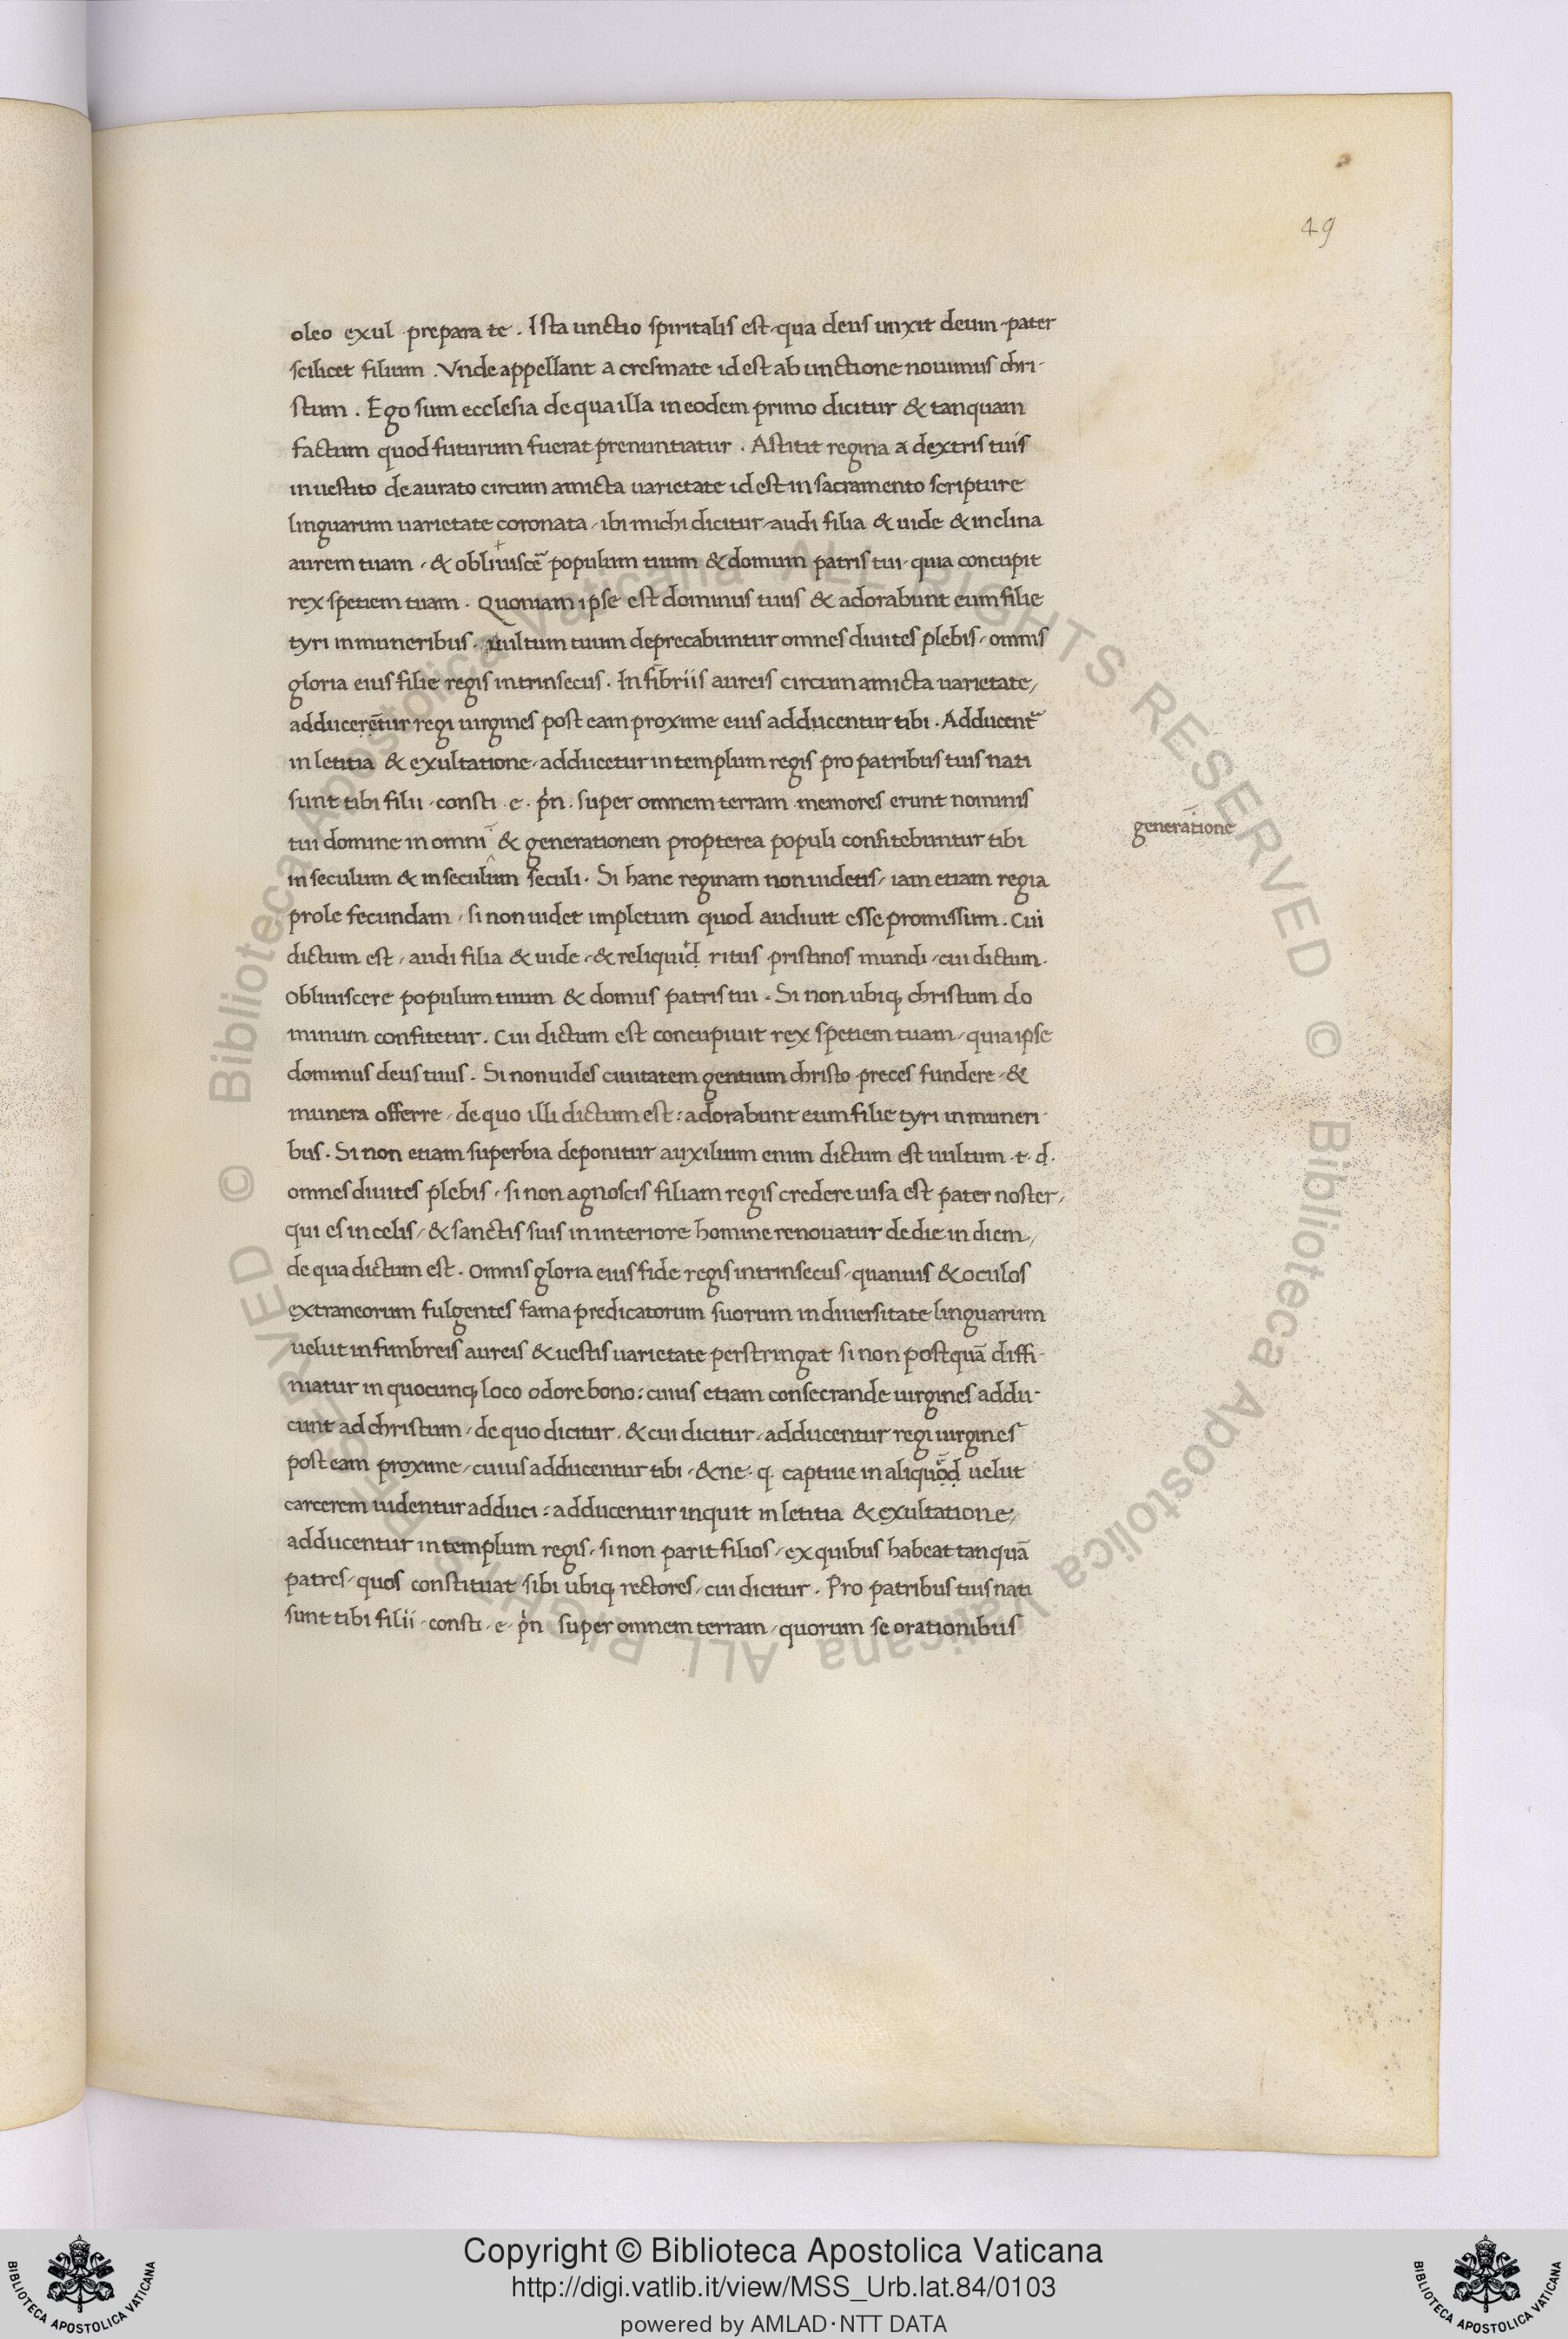 49
oleo exul prepara te . Ista unctio spiritalis est qua deus unxit deum pater
scilicet filium . Vnde appellant a cresmate id est ab unctione nouimus chri-
stum . Ego sum ecclesia de qua illa in eodem primo dicitur & tanquam
factum quod futurum fuerat prenuntiatur . Astitit regina a dextris tuis
in uestito de aurato circum amicta uarietate id est in sacramento scripture
linguarum uarietate coronata / ibi michi dicitur / audi filia & uide & inclina
aurem tuam / & obliuiscē populum tuum & domum patris tui quia concupit
rex spetiem tuam . Quoniam ipse est dominus tuus & adorabunt eum filie
tyri in muneribus . uultum tuum deprecabuntur omnes diuites plebis / omnis
gloria eius filie regis intrinsecus . In fibriis aureis circum amicta uarietate /
adducerētur regi uirgines post eam proxime eius adducentur tibi . Adducent̄
in letitia & exultatione / adducetur in templum regis pro patribus tuis nati
sunt tibi filii consti . e . pn̄ . super omnem terram memores erunt nominis
tui domine in omni & generationem propterea populi confitebuntur tibi
generatione
in seculum & in seculum seculi . Si hanc reginam non uidetis / iam etiam regia
prole fecundam / si non uidet impletum quod audiuit esse promissum . Cui
dictum est / audi filia & uide / & reliquid ritus pristinos mundi / cui dictum .
obliuiscere populum tuum & domus patris tui . Si non ubiq; christum do
minum confitetur . Cui dictum est concupiuit rex spetiem tuam / quia ipse
dominus deus tuus . Si non uides ciuitatem gentium christo preces fundere / &
munera offerre / de quo illi dictum est : adorabunt eum filie tyri in muneri
bus . Si non etiam superbia deponitur auxilium enim dictum est uultum . t . d .
omnes diuites plebis / si non agnoscis filiam regis credere uisa est pater noster /
qui es in celis / & sanctis suis in interiore homine renouatur de die in diem /
de qua dictum est . Omnis gloria eius fide regis intrinsecus / quanuis & oculos
extraneorum fulgentes fama predicatorum suorum in diuersitate linguarum
uelut in fimbreis aureis & uestis uarietate perstringat si non postquā diffi-
niatur in quocunq; loco odore bono : cuius etiam consecrande uirgines addu-
cunt ad christum / de quo dicitur / & cui dicitur / adducentur regi uirgines
post eam proxime / cuius adducentur tibi / & ne . q . captiue in aliquod uelut
carcerem uidentur adduci : adducentur inquit in letitia & exultatione /
adducentur in templum regis / si non parit filios / ex quibus habeat tanquā
patres / quos constituat sibi ubiq; rectores / cui dicitur . Pro patribus tuis nati
sunt tibi filii / consti / e / pn̄ super omnem terram / quorum se orationibus
Copyright © Biblioteca Apostolica Vaticana
http://digi.vatlib.it/view/MSS_Urb.lat.84/0103
powered by AMLAD·NTT DATA